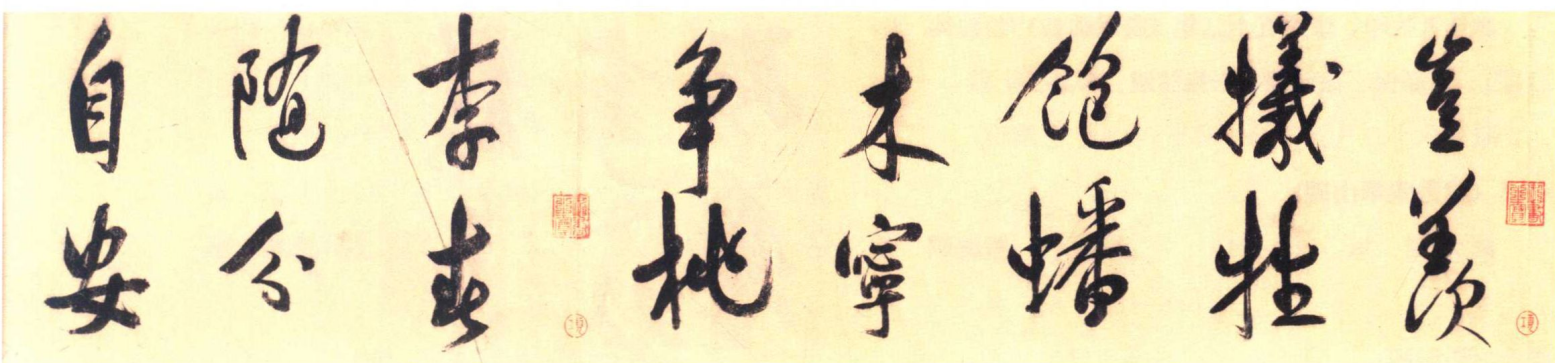 豈羨
犠牲
飽蟠
木寧
争桃
李春
随分
自安